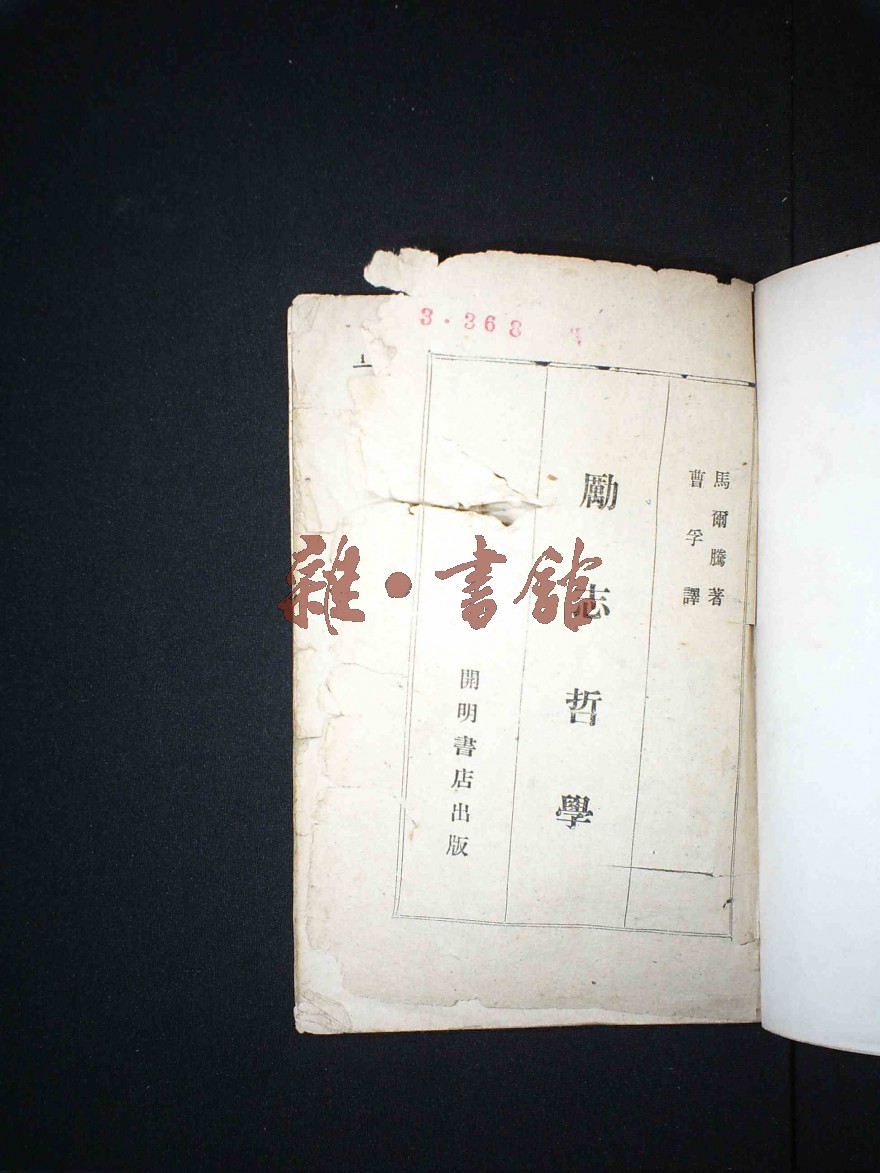 3.368
馬爾騰著
曹孚譯
勵志哲學
開明書店出版
雜·書館